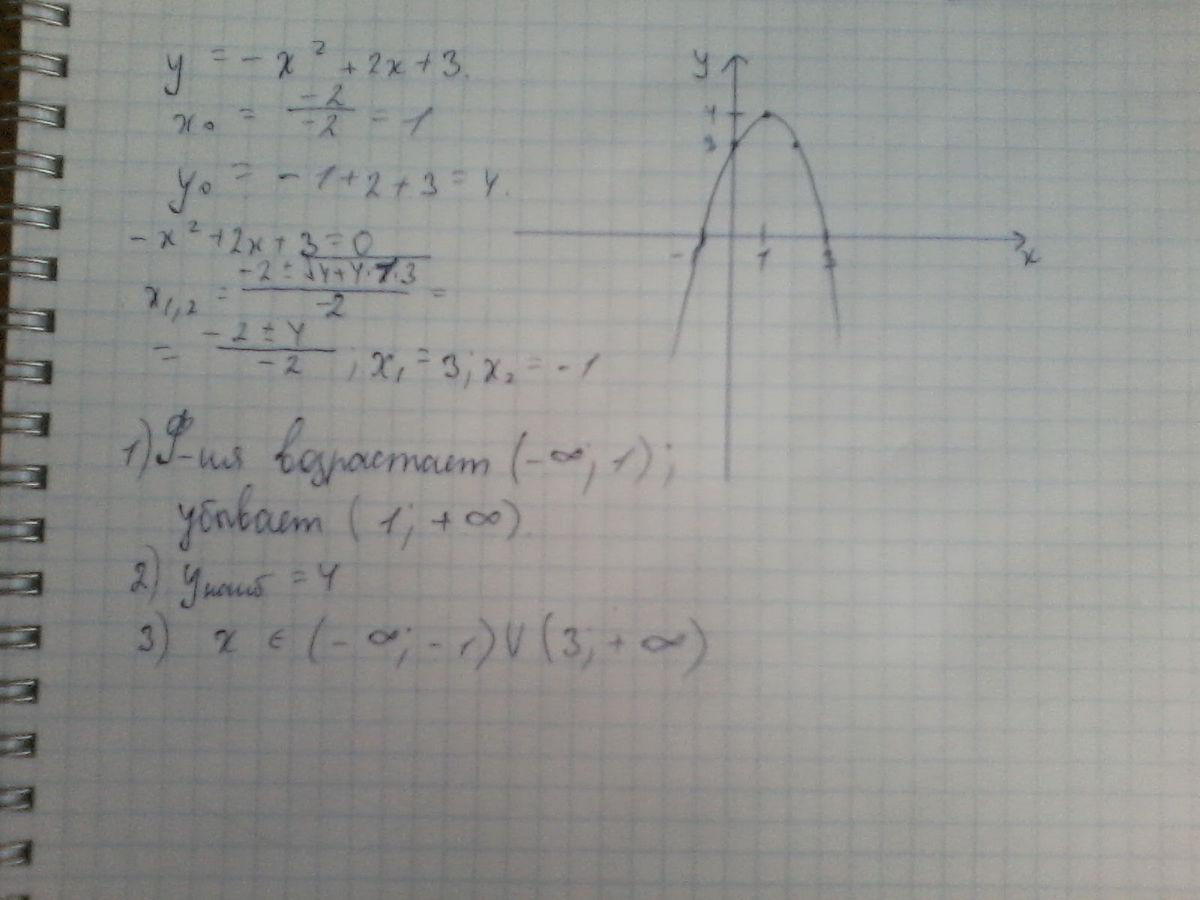 y = -x² + 2x + 3.
x₀ = -2/-2 = 1
y₀ = -1 + 2 + 3 = 4.
-x² + 2x + 3 = 0
x₁,₂ = (-2 ± √(4+4·1·3))/-2 =
= (-2 ± 4)/-2 ; x₁ = 3; x₂ = -1
1) Ф-ия возрастает (-∞; 1);
убывает (1; +∞).
2) yнаиб = 4
3) x ∈ (-∞; -1) ∪ (3; +∞)
y
4
3
-1 1 3 x